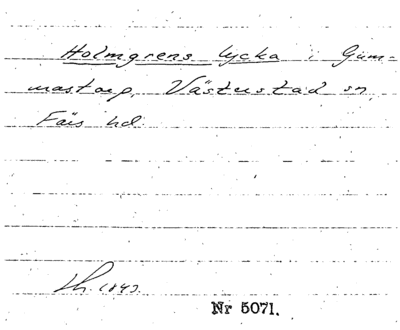 Holmgrens lycka i Gum-
mastorp, Västerstad sn,
Färs hd.
Lh. 1843.
Nr 5071.